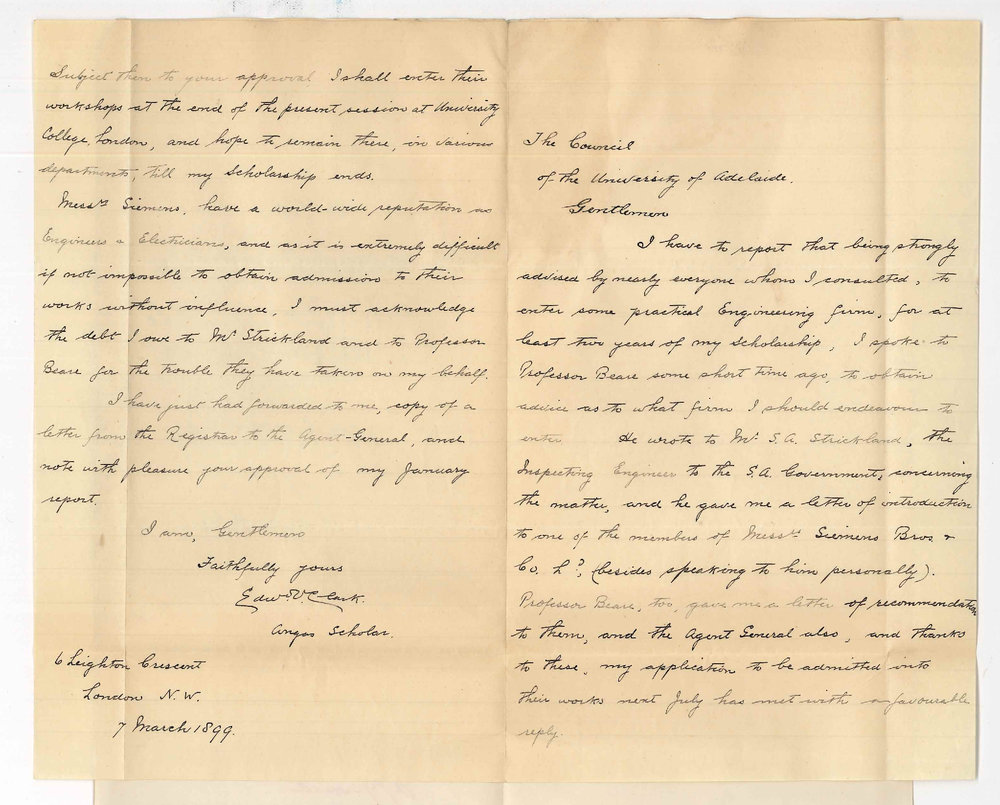 The Council
of the University of Adelaide.
Gentlemen
I have to report that being strongly
advised by nearly everyone whom I consulted, to
enter some practical Engineering firm, for at
least two years of my Scholarship, I spoke to
Professor Beare some short time ago, to obtain
advice as to what firm I should endeavour to
enter He wrote to Mr S. A. Strickland, the
Inspecting Engineer to the S.A. Government, concerning
the matter, and he gave me a letter of introduction
to one of the members of Messrs Siemens Bros &
Co. Ld, (besides speaking to him personally).
Professor Beare, too, gave me a letter of recommendation
to them, and the Agent General also, and thanks
to these, my application to be admitted into
their works next July has met with a favourable
reply.
Subject then to your approval I shall enter their
workshops at the end of the present session at University
College, London, and hope to remain there, in various
departments, till my Scholarship ends.
Messrs Siemens, have a world-wide reputation as
Engineers & Electricians, and as it is extremely difficult
if not impossible to obtain admission to their
works without influence, I must acknowledge
the debt I owe to Mr Strickland and to Professor
Beare for the trouble they have taken on my behalf.
I have just had forwarded to me, copy of a
letter from the Registrar to the Agent-General, and
note with pleasure your approval of my January
report.
I am, Gentlemen
Faithfully yours
Edw. V. Clark.
Angas Scholar.
6 Leighton Crescent
London N.W.
7 March 1899.